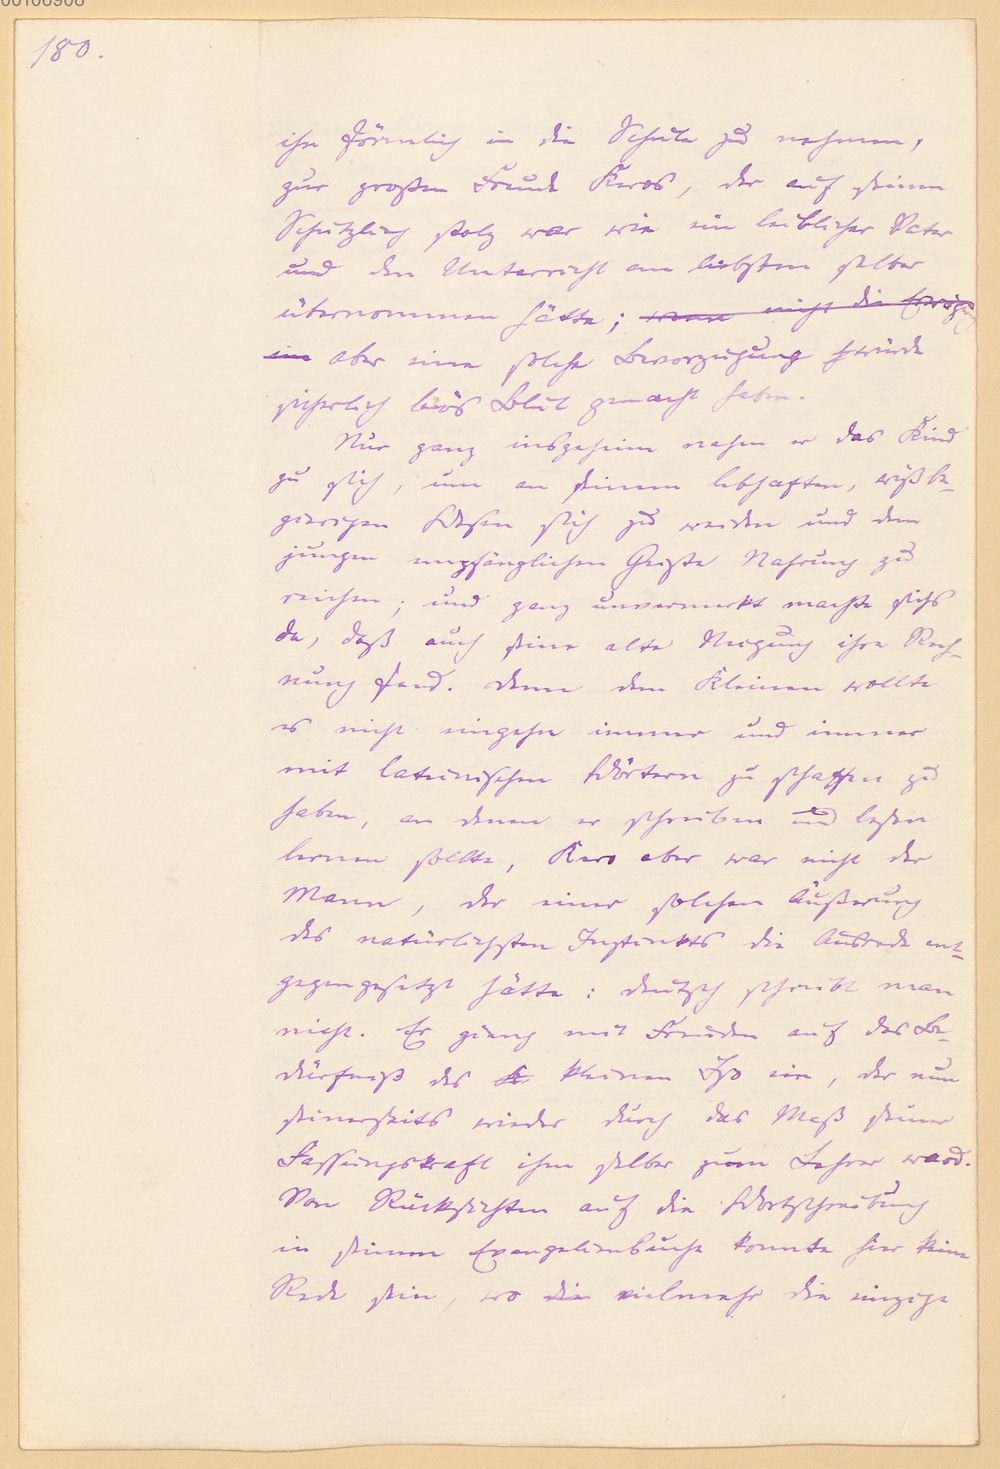 00106908
180.
ihn förmlich in die Schule zu nehmen,
zur großen Freude Keros, der auf seinen
Schützling stolz war wie ein leiblicher Vater
und den Unterricht am liebsten selber
übernommen hätte; wenn nicht die Erwägung
ein aber eine solche Bevorzugung würde
sicherlich bös Blut gemacht haben.
Nur ganz insgeheim nahm er das Kind
zu sich, um an seinem lebhaften, wißbe-
gierigen Wesen sich zu weiden und dem
jungen empfänglichen Geiste Nahrung zu
reichen; und ganz unvermerkt machte sichs
da, daß auch seine alte Neigung ihre Rech-
nung fand. Denn dem Kleinen wollte
es nicht eingehn immer und immer
mit lateinischen Wörtern zu schaffen zu
haben, an denen er schreiben und lesen
lernen sollte, Kero aber war nicht der
Mann, der einer solchen Äußerung
des natürlichsten Instinkts die Ausrede ent-
gegengesetzt hätte: deutsch schreibt man
nicht. Er gieng mit Freuden auf das Be-
dürfniß des kleinen Iso ein, der nun
seinerseits wieder durch das Maß seiner
Fassungskraft ihm selber zum Lehrer ward.
Von Rücksichten auf die Wortschreibung
in seinem Evangelienbuche konnte hier keine
Rede sein, wo die vielmehr die einzige